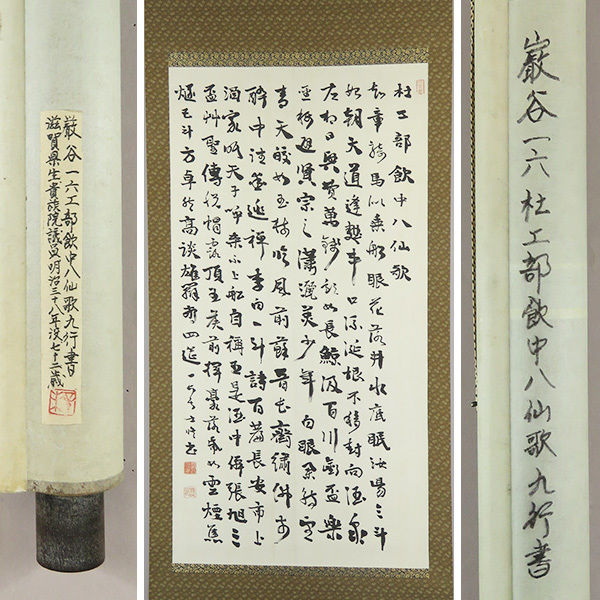 巌谷一六工部飲中八仙歌九行書
滋賀県生貴族院議員明治三十八年没七十二歳
杜工部飲中八仙歌
知章騎馬似乗船眼花落井水底眠汝陽三斗
始朝天道逢麹車口流涎恨不移封向酒泉
左相日興費萬錢飲如長鯨吸百川銜盃樂
聖称避賢宗之瀟灑美少年白眼
青天皎如玉樹臨風前蘇晉長齋繡佛前
酔中逃禅李白一斗詩百篇長安市上
酒家眠天子呼来不上船自稱臣是酒中僊張旭三
盃艸聖傳脱帽露頂王公前揮豪落紙如雲煙焦
遂五斗方卓然高談雄辯驚四筵一六居士修書
巖谷一六杜工部飲中八仙歌九行書